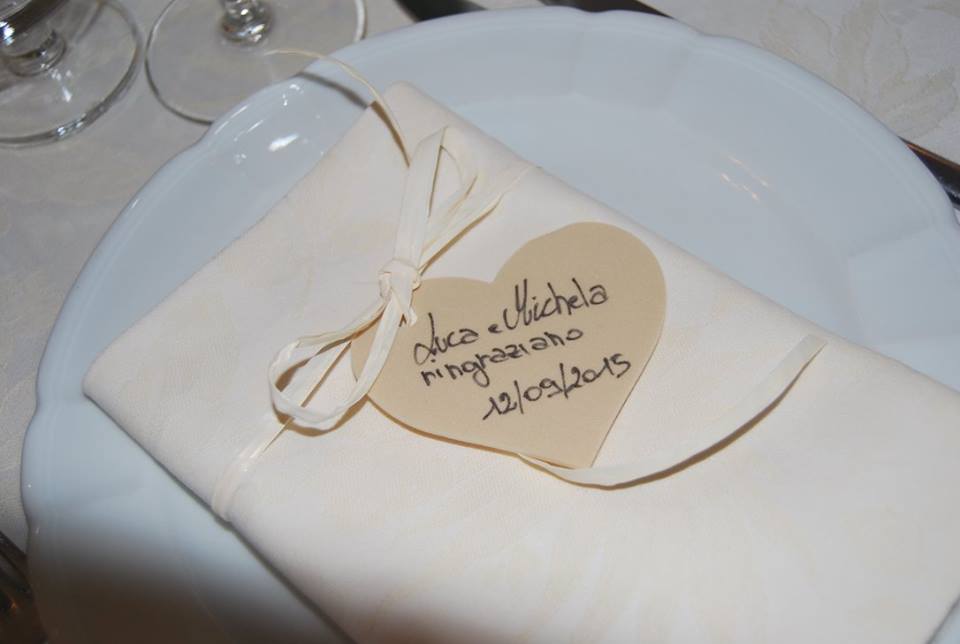 Luca e Michela
ringraziano
12/09/2015